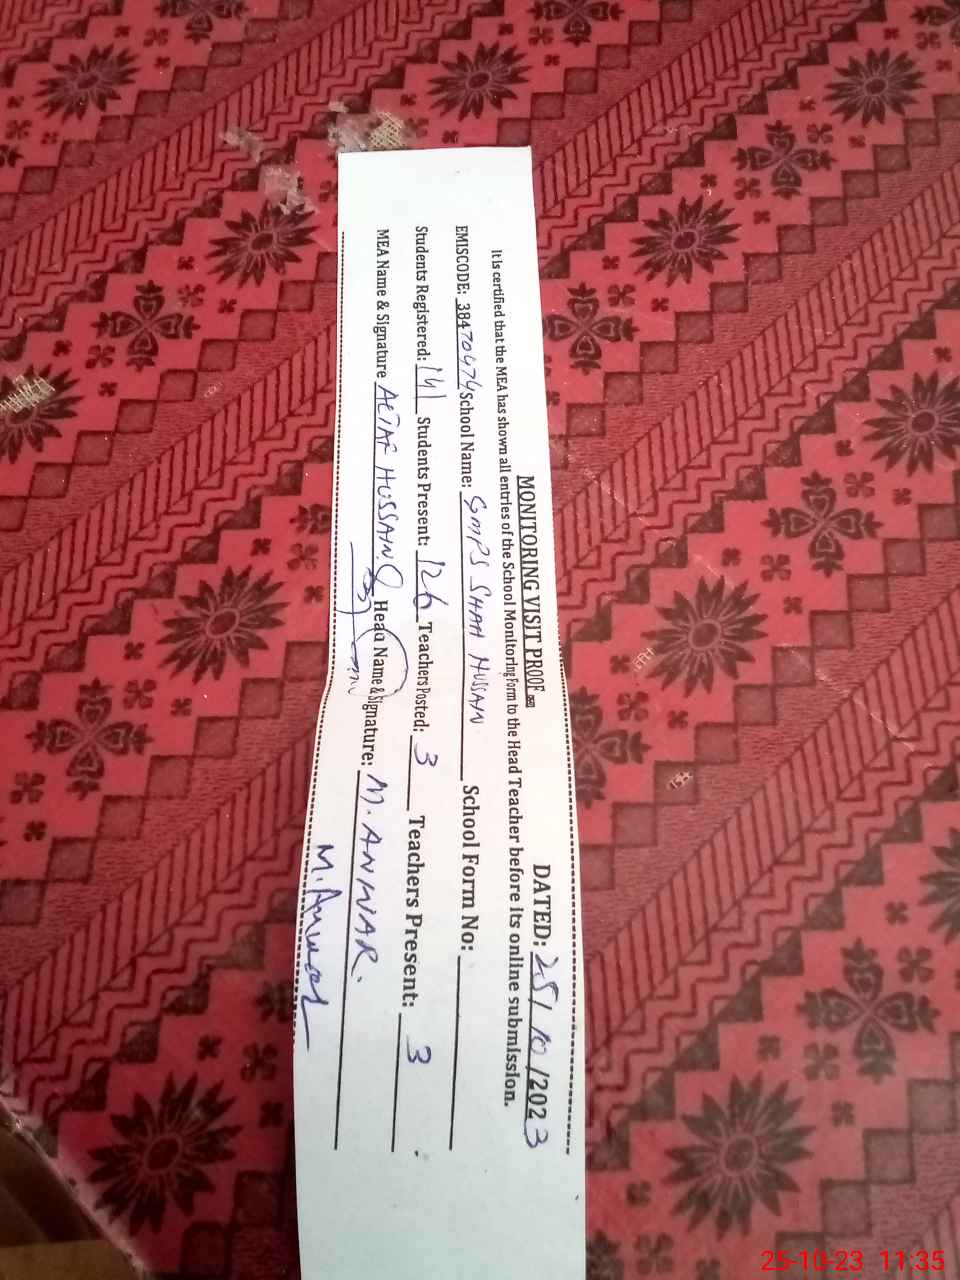 MONITORING VISIT PROOF
DATED: 25/10/2023
It is certified that the MEA has shown all entries of the School Monitoring Form to the Head Teacher before its online submission.
EMISCODE: 38470474 School Name: GMPS SHAH HUSSAIN School Form No:
Students Registered: 141 Students Present: 126 Teachers Posted: 3 Teachers Present: 3
MEA Name & Signature ALTAF HUSSAIN Head Name & Signature: M. ANWAR.
M. Anwar
25-10-23 11:35